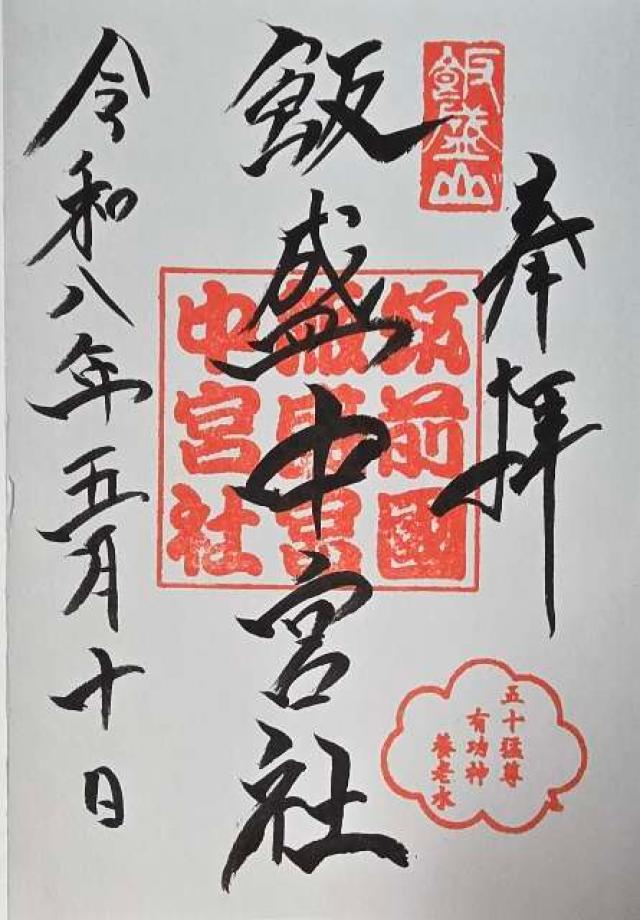 奉拝
飯盛山
飯盛中宮社
筑前國
飯盛宮
中宮社
令和八年五月十日
五十猛尊
有功神
養老水